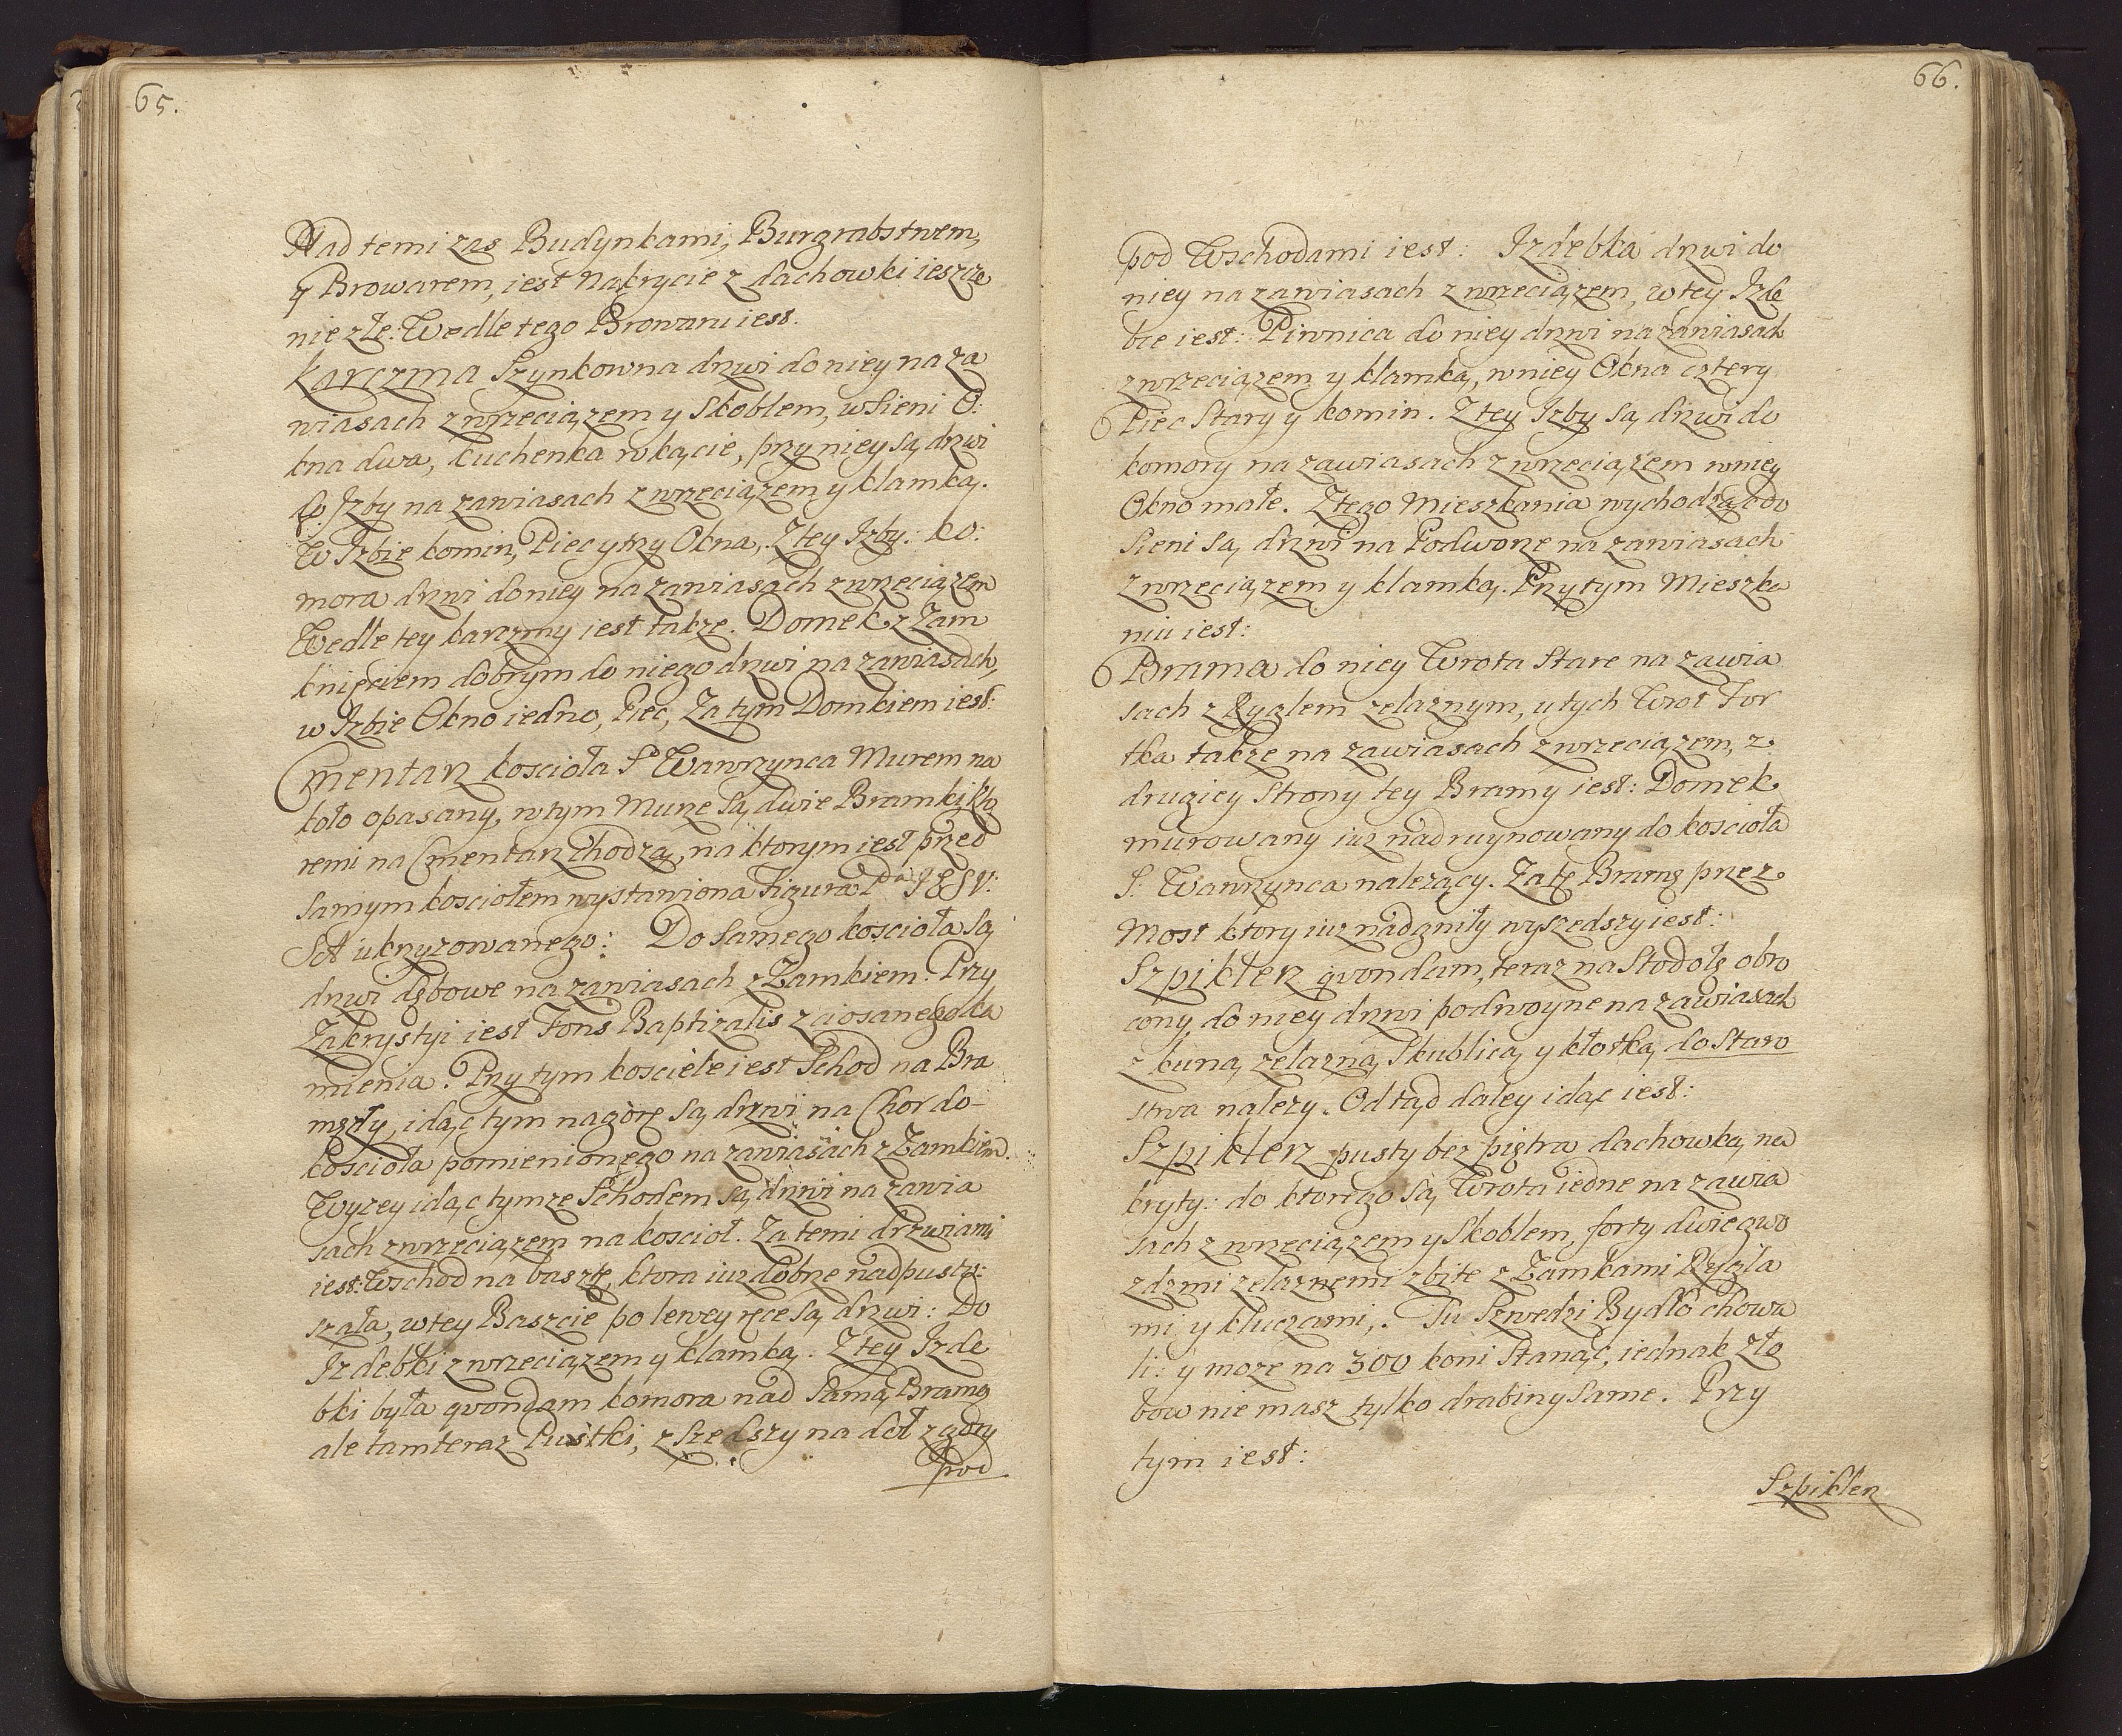 65.
Nad temi zas Budynkami, Burgrabstwem,
y Browarem, iest Nakrycie z dachowki ieszcze
nie złe. Wedle tego Browaru iest.
Karczma Szynkowna drzwi do niey na za
wiasach z wrzeciązem y Skoblem, w Sieni O:
kna dwa, kuchenka w kącie, przy niey są drzwi
do Izby na zawiasach z wrzeciązem y klamką.
W Izbie komin, Piec y trzy Okna, Z tey Izby: Ko:
mora drzwi do niey na zawiasach z wrzeciązem
Wedle tey karczmy iest także. Domek z Zam
knięciem dobrym do niego drzwi na zawiasach,
w Izbie Okno iedno, Piec, Za tym Domkiem iest:
Cmentarz kościoła S. Wawrzynca Murem na
koło opasany, w tym Murze są dwie Bramki kto
remi na Cmentarz chodzą, na ktorym iest przed
samym kosciołem wystawiona Figura
ukrzyzowanego: Do samego kościoła są
drzwi dębowe na zawiasach z Zamkiem. Przy
Zakrystyi iest Fons Baptizalis z ciosanego ka
mienia. Przy tym kościele iest Schod na Bra
mę, idąc tym na gorę są drzwi na Chor do
kościoła pomienionego na zawiasach z Zamkiem.
Wyzey idąc tymze Schodem są drzwi na zawia
sach z wrzeciązem na koscioł. Za temi drzwiami
iest: Wschod na basztę, ktora iuz dobrze nadpusto:
szała, w tey Baszcie po lewey ręce są drzwi: Do
Izdebki z wrzeciązem y klamką. Z tey Izde
bki była qvondam komora nad samą Bramą
ale tam teraz Pustki, z Szedszy na doł z gory
pod
66.
pod Wschodami iest: Izdebka drzwi do
niey na zawiasach z wrzeciązem, w tey Izde
bce iest: Piwnica do niey drzwi na zawiasach
z wrzeciązem y klamką, w niey Okna cztery
Piec Stary y komin. Z tey Izby są drzwi do
komory na zawiasach z wrzeciązem w niey
Okno małe. Z tego Mieszkania wychodząc do
Sieni są drzwi na Podworze na zawiasach
z wrzeciązem y klamką. Przy tym Mieszka
niu iest:
Brama do niey Wrota Stare na zawia
sach z Ryglem zelaznym, u tych Wrot For
tka także na zawiasach z wrzeciązem, z
drugiey Strony tey Bramy iest: Domek
murowany iuz nadruynowany do kościoła
S. Wawrzynca nalezący. Za tę Bramę przez
Most ktory iuz nadgniły wyszedszy iest:
Szpiklerz qvondam, teraz na Stodołę obro
cony, do niey drzwi podwoyne na zawiasach
z kuną zelazną, Skublicą y kłotką, do Staro
stwa nalezy. Od tąd daley idąc iest:
Szpiklerz pusty bez piętra dachowką na
kryty: do ktorego są Wrota iedne na zawia
sach z wrzeciązem y Skoblem, forty dwie gwo
zdzmi zelaznemi zbite z Zamkami Rygla
mi y kluczami,. Tu Szwedzi Bydło chowa
li: y moze na 300 koni Stanąć, iednak zło
bow nie masz tylko drabiny same. Przy
tym iest:
Szpiklerz